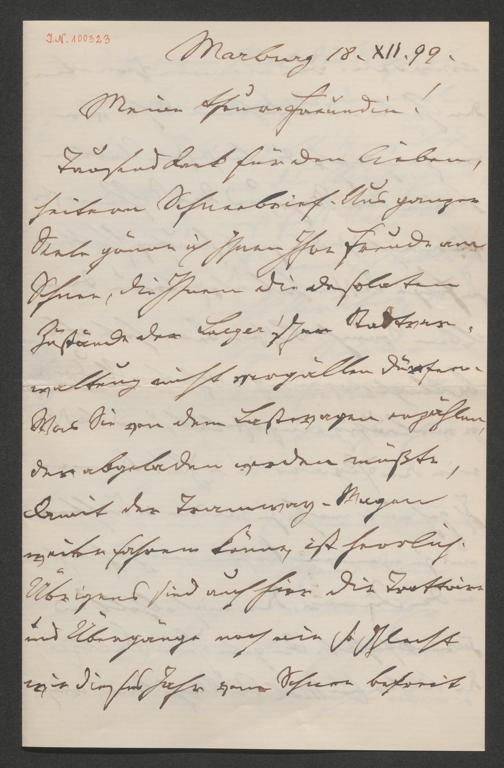 I.N. 100323
Marburg 18. XII. 99.
Meine theure Freundin!
Tausend Dank für den lieben,
heitern Schneebrief. Aus ganzer
Seele gönne ich Ihnen Ihre Freude am
Schnee, die Ihnen die desolaten
Zustände der Lueger'schen Stadtver-
waltung nicht vergällen dürfen.
Was Sie von dem Lastwagen erzählen,
der abgeladen werden müßte,
damit der Tramway-Wagen
weiter fahren könne, ist herrlich.
Übrigens sind auch hier die Trottoire
und Übergänge noch nie so schlecht
wie dieses Jahr vom Schnee befreit